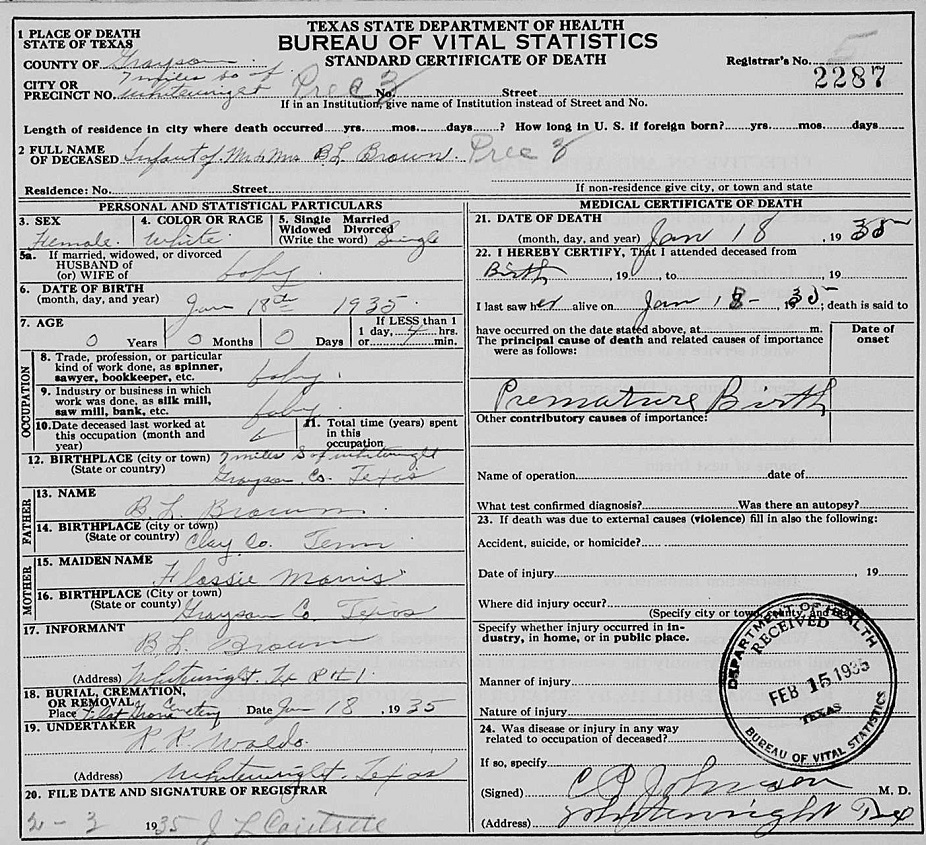 TEXAS STATE DEPARTMENT OF HEALTH
BUREAU OF VITAL STATISTICS
STANDARD CERTIFICATE OF DEATH
1 PLACE OF DEATH
STATE OF TEXAS
COUNTY OF Grayson
Registrar's No. 5
2287
7 miles so of
CITY OR PRECINCT NO. Whitewright Prec 3 No. Street
If in an Institution, give name of Institution instead of Street and No.
Length of residence in city where death occurred yrs. mos. days ? How long in U. S. if foreign born? yrs. mos. days
2 FULL NAME OF DECEASED Infant of Mr & Mrs B L Brown. Prec 3
Residence: No. Street If non-residence give city, or town and state
PERSONAL AND STATISTICAL PARTICULARS
3. SEX Female. 4. COLOR OR RACE White 5. Single Married Widowed Divorced (Write the word) Single
5a. If married, widowed, or divorced
HUSBAND of
(or) WIFE of baby.
6. DATE OF BIRTH
(month, day, and year) Jan 18th 1935
7. AGE 0 Years 0 Months 0 Days If LESS than 1
1 day, 4 hrs.
or min.
OCCUPATION
8. Trade, profession, or particular
kind of work done, as spinner,
sawyer, bookkeeper, etc. baby.
9. Industry or business in which
work was done, as silk mill,
saw mill, bank, etc. baby.
10. Date deceased last worked at
this occupation (month and
year)
11. Total time (years) spent
in this
occupation
12. BIRTHPLACE (city or town) 7 miles S of Whitewright
(State or country) Grayson Co. Texas
FATHER
13. NAME B. L. Brown
14. BIRTHPLACE (city or town)
(State or country) Clay Co. Tenn
MOTHER
15. MAIDEN NAME Flossie Morris
16. BIRTHPLACE (City or town)
(State or county) Grayson Co Texas
17. INFORMANT B. L. Brown
(Address) Whitewright Tx R#1
18. BURIAL, CREMATION,
OR REMOVAL
Place Cemetery Date Jan 18, 1935
19. UNDERTAKER R. R. Waldo.
(Address) Whitewright. Texas
20. FILE DATE AND SIGNATURE OF REGISTRAR
2-3 1935 J L
MEDICAL CERTIFICATE OF DEATH
21. DATE OF DEATH
(month, day, and year) Jan 18, 1935
22. I HEREBY CERTIFY, That I attended deceased from
Birth, 19 , to , 19
I last saw her alive on Jan 18 - 35, 19 ; death is said to
have occurred on the date stated above, at m.
The principal cause of death and related causes of importance
were as follows:
Date of
onset
Premature Birth
Other contributory causes of importance:
Name of operation date of
What test confirmed diagnosis? Was there an autopsy?
23. If death was due to external causes (violence) fill in also the following:
Accident, suicide, or homicide?
Date of injury , 19
Where did injury occur?
(Specify city or town, county, and State)
Specify whether injury occurred in in-
dustry, in home, or in public place.
Manner of injury
Nature of injury
24. Was disease or injury in any way
related to occupation of deceased?
If so, specify
(Signed) Johnson M. D.
(Address) Whitewright Tex
DEPARTMENT OF HEALTH
RECEIVED
FEB 15 1935
TEXAS
BUREAU OF VITAL STATISTICS